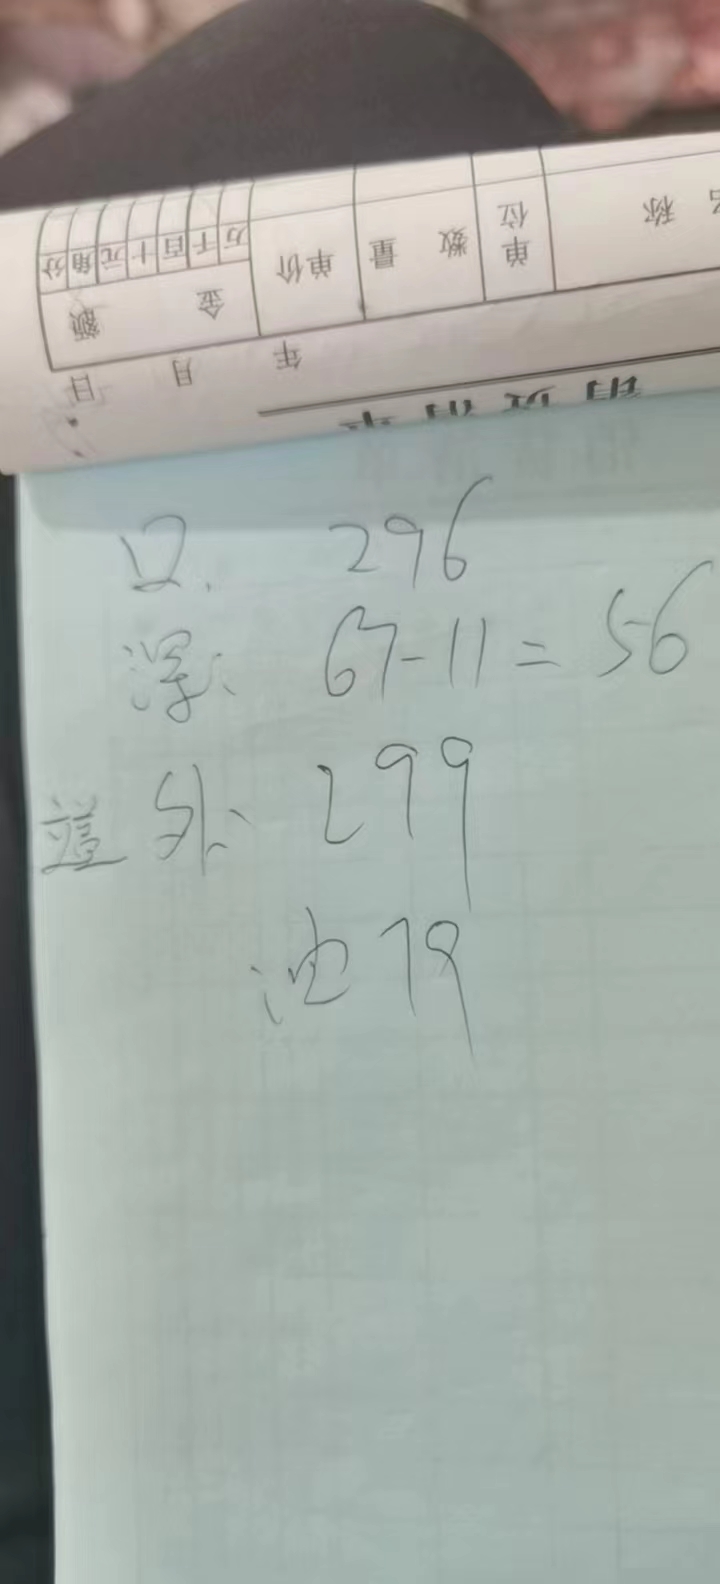 名 称 单位 数 量 单价 金 额
万 千 百 十 元 角 分
年 月 日
口. 296
深、 67-11=56
盖 外、 299
池 79